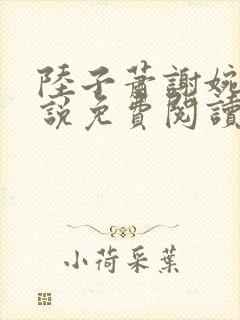 陸子蕭謝婉
說免費閱讀
小荷采葉